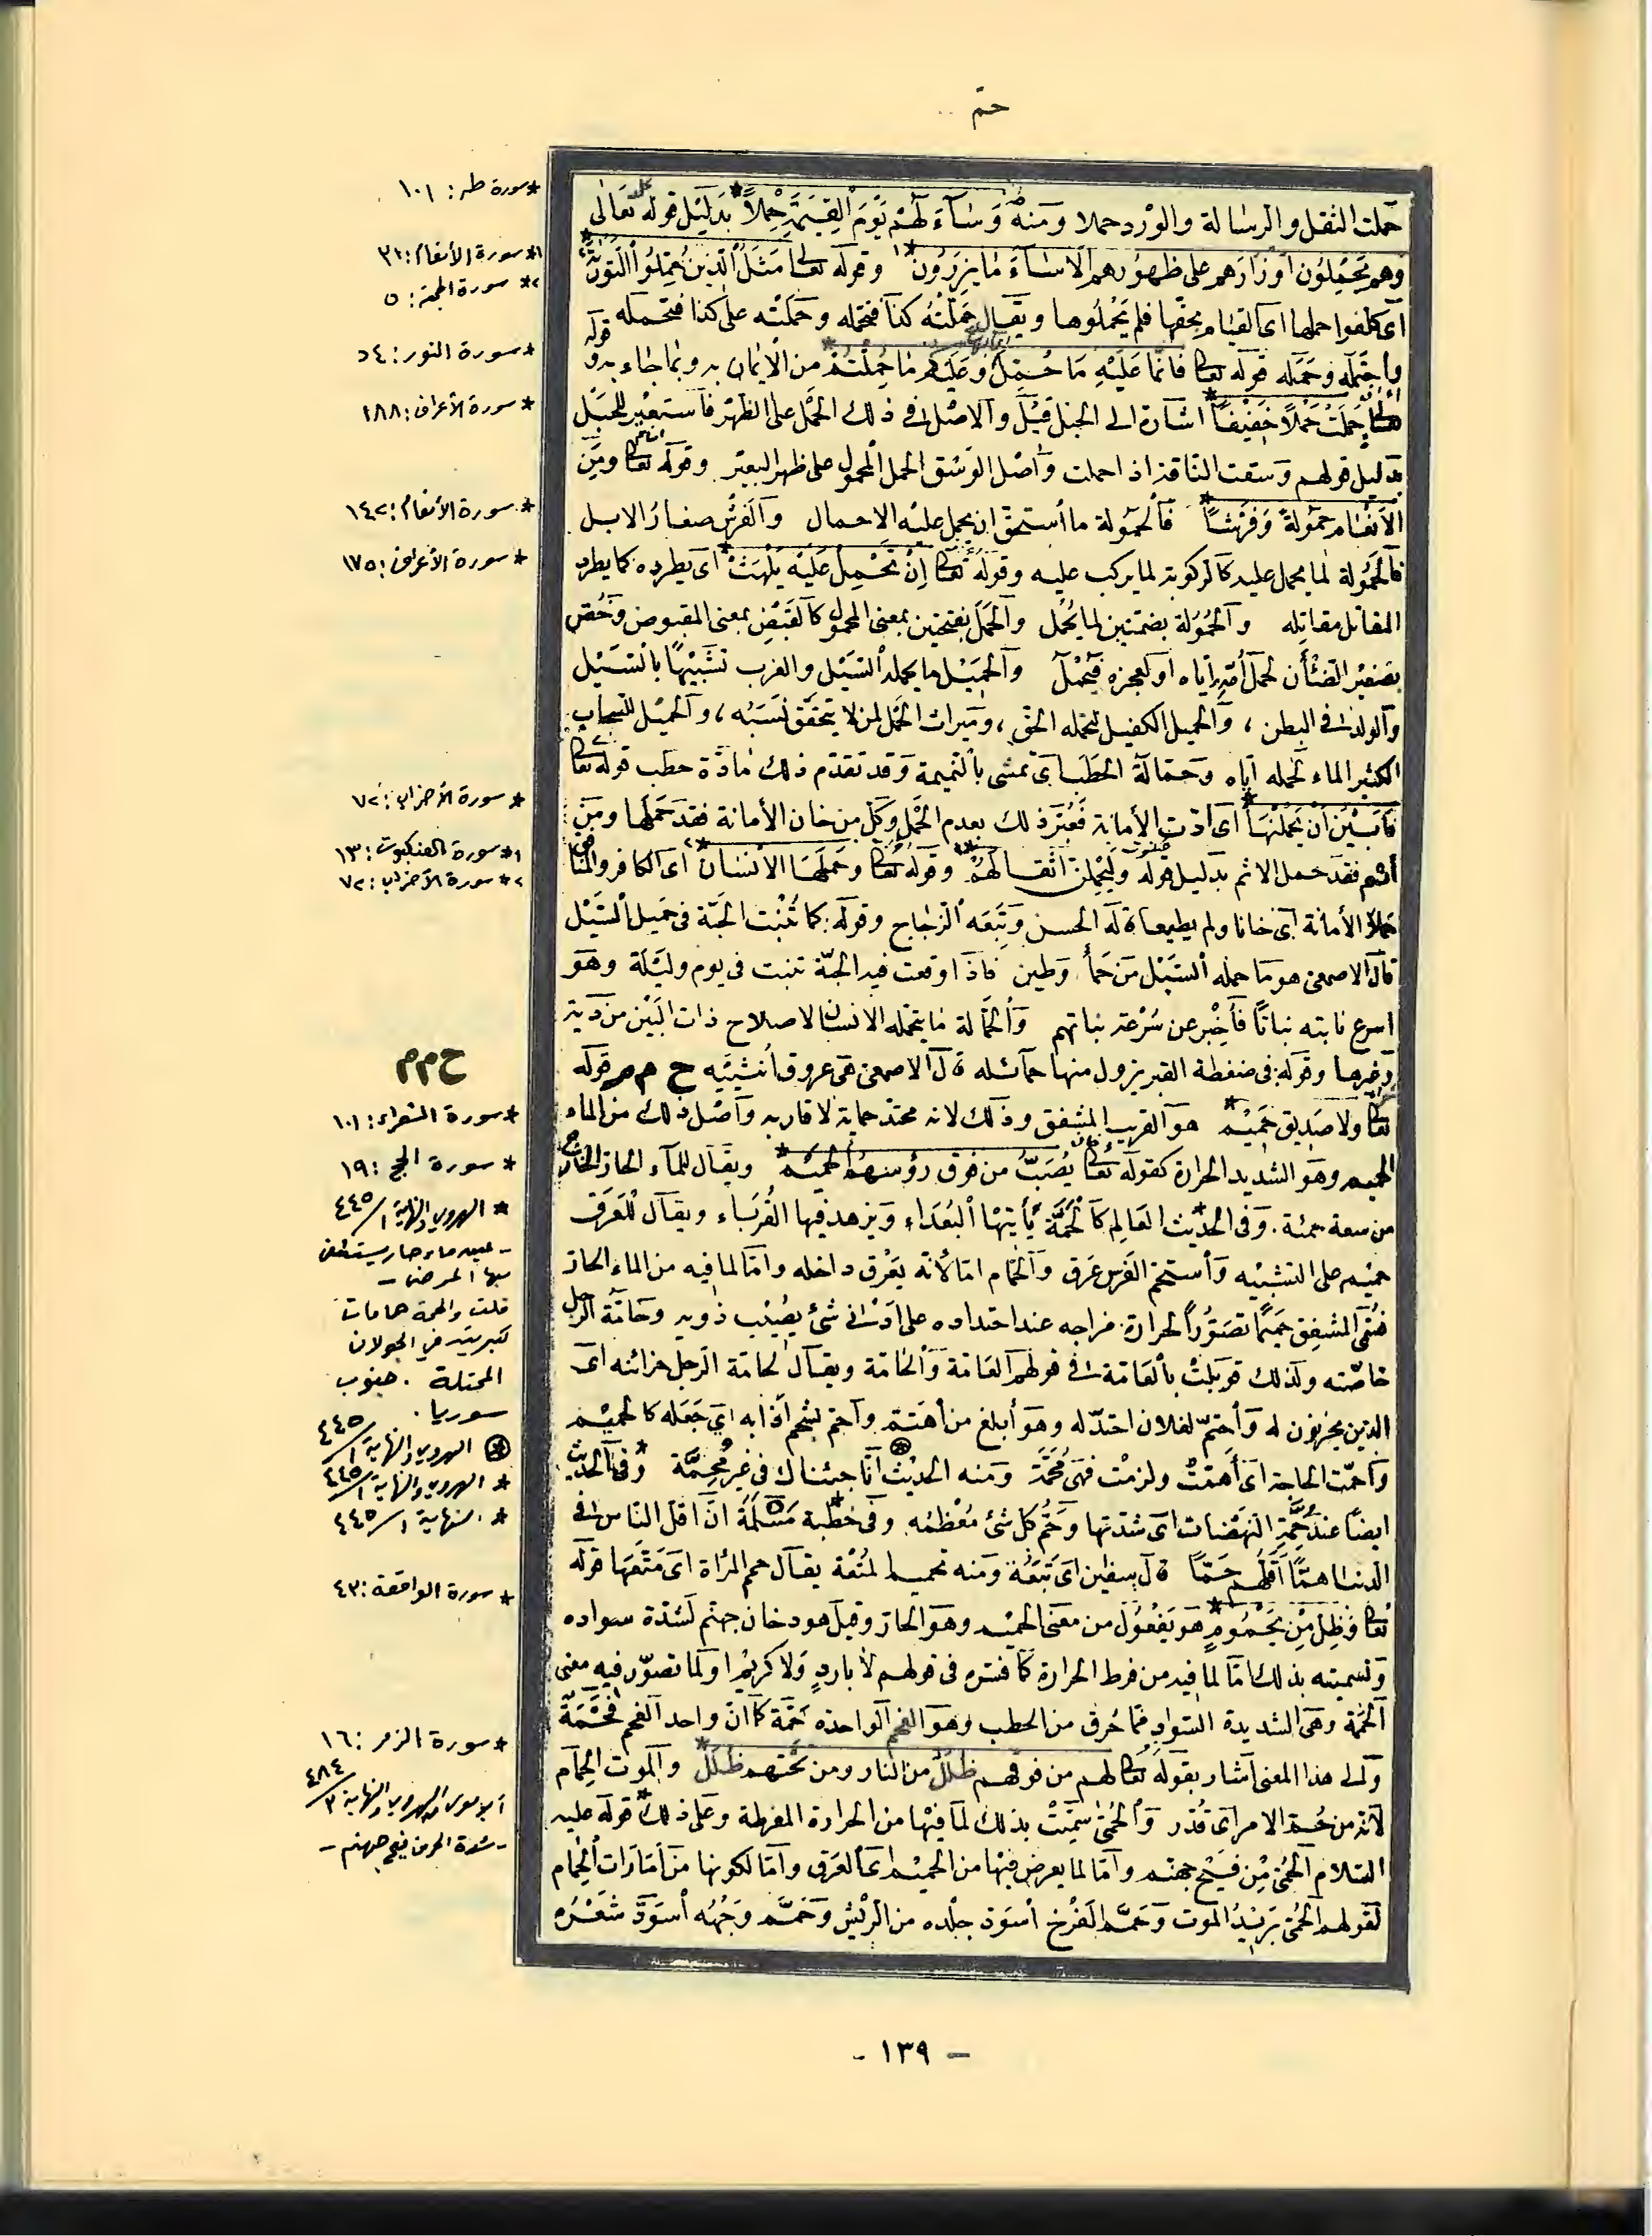 حمّ
حملت الثقل والرسالة والوزر حملا ومنه وَسَاءَ لَهُمْ يَوْمَ الْقِيٰمَةِ حِمْلاً* بدليل قوله تعالى
وهم يَحْمِلُون أوزارهم على ظهورهم ألا ساءَ ما يزرون*١ وقوله تعالى مَثَلُ الَّذِينَ حُمِّلُوا التَّوْرٰيةَ*٢
اى كلفوا حملها اى القيام بحقها فلم يَحْمِلُوها ويقال حَمَّلْتُه كذا فتحمله وحَمَّلْتُ عليه كذا فتحمله
واحتمله وحمله قوله تعالى فانما عَلَيْهِ مَا حُمِّلَ وَعَلَيْكُم مَا حُمِّلْتُمْ* من الايمان به وبما جاء به وقوله
تعالى حَمَلَتْ حَمْلاً خَفِيفاً* اشارة الى الحبل قيل والاصل فى ذلك الحمل على الظهر فاستعير للحبل
بدليل قولهم وسقت الناقة اذا حملت واصل الوسق الحمل المحمول على ظهر البعير وقوله تعالى ومن
الأنعام حَمُولَةً وَفَرْشاً* فالحمولة ما استحق ان يحمل عليه الاحمال والفرش صغار الابل
فالحمولة لما يحمل عليه كالركوبة لما يركب عليه وقوله تعالى إن تَحْمِلْ عَلَيْهِ يَلْهَثْ* اى يطرده كما يطرد
المقاتل مقاتله والحُمُولة بضمتين لما يُحمل والحَمَل بفتحتين بمعنى المحمول كالقَبَض بمعنى المقبوض وخُصّ
بصغير الضأن لحمل أمه إياه او لعجزه فيحمل والحميل ما يحمله السيل والغرب تشبيها بالسيل
والولد فى البطن، والحميل الكفيل لتحمله الحق، وميراث الحميل لمن لا يتحقق نسبه، والحميل للسحاب
الكثير الماء لحمله اياه وحمالة الحطب اى تمشى بالنميمة وقد تقدم ذلك مادّة حطب قوله تعالى
فَأَبَيْنَ أَنْ يَحْمِلْنَهَا* اى أدت الأمانة فعبّر ذلك بعدم الحمل وكل من خان الأمانة فقد حملها ومن
أثم فقد حمل الاثم بدليل قوله ولَيَحْمِلُنَّ أثقالهم*١ وقوله تعالى وحَمَلَهَا الانسان*٢ اى الكافر والمنافق
حملا الأمانة اى خانا ولم يطيعا قاله الحسن وتبعه الزجاج وقوله: كما تُنْبَت الحَبّة فى حَمِيل السَّيْل
قال الاصمعى هو ما حمله السيل من حمأ وطين فاذا وقعت فيه الحبّة تنبت فى يوم وليلة وهو
اسرع نابتة نباتا فأخبر عن سُرْعة نباتهم والحَمَالة ما يتحمله الانسان لاصلاح ذات البَيْن من دية
وغيرها وقوله: فى ضغطة القبر يزول منها حمائله قال الاصمعى هى عروق أنثييه ح م م قوله
تعالى ولا صَدِيق حَمِيْم* هو القريب المشفق وذلك لانه محتد حماية لاقاربه وأصل ذلك من الماء
الحميم وهو الشديد الحرارة كقوله تعالى يُصَبُّ من فوق رؤسهم الحميم* ويقال للماء الحار الخارج
من منبعه حمئة. وفى الحديث العالم كالحَمَّة يأتيها البُعَداء ويزهد فيها القُرَباء ويقال للعَرَق
حميم على التشبيه واستحمّ الفرس عرق والحمام اما لانه يعرق داخله واما لما فيه من الماء الحار
فسُمّى المشفق حميما تصوّرا لحرارة مزاجه عند احتداده على أدنى شئ يصيب ذويه وحامّة الرجل
خاصّته ولذلك قوبلت بالعامّة فى قولهم العامّة والحامّة ويقال لحامة الرجل حزانته اى
الذين يحزنون له واحتمّ لفلان احتدّ له وهو أبلغ من اهتمّ واحمّ الشحم أذابه اى جعله كالحميم
واحمّت الحاجة اى أهمّتْ ولزمت فهى مُحِمَّة ومنه الحديث انا جئناك فى غير مُحِمَّة وفى الحديث
ايضا عند حُمَّةِ النهضات اى شدتها وحَمّ كل شئ معظمه وفى خطبة مَسْلَمَة انّ اقل الناس فى
الدنيا همًّا أقلهم حَمًّا قال سفين اى مُتْعَة ومنه تحميم المتعة يقال حمم المرأة اى متعها قوله
تعالى وَظِلٍّ مِّن يَحْمُومٍ* هو يفعول من معنى الحميم وهو الحار وقيل هو دخان جهنم لشدة سواده
وتسميته بذلك اما لما فيه من فرط الحرارة كما فسره فى قوله لا باردٍ ولا كريم او لما تصوّر فيه معنى
الحُمَمة وهى الشديدة السواد مما حُرق من الحطب وهو الفحم الواحدة حُمَمة كما ان واحد الفحم فَحْمَة
والى هذا المعنى اشار بقوله تعالى لهم من فوقهم ظُلَلٌ من النار ومن تحتهم ظُلَلٌ* والموت الحِمام
لانه من حُمّ الامر اى قُدّر والحُمّى سُمّيت بذلك لما فيها من الحرارة المفرطة وعلى ذلك* قوله عليه
السلام الحُمّى مِن فَيْحِ جهنم واما لما يعرض فيها من الحميم اى العرق واما لكونها من أمارات الحِمام
لقولهم الحُمّى بَرِيدُ الموت وحَمَّم الفَرْخ اسودّ جلده من الرّيش وحَمَّم وَجْهُه اسودّ شَعْرُه
*سورة طه: ١٠١
١*سورة الأنعام: ٣١
٢*سورة الجمعة: ٥
*سورة النور: ٥٤
*سورة الأعراف: ١٨٨
*سورة الأنعام: ١٤٢
*سورة الأعراف: ١٧٥
*سورة الأحزاب: ٧٢
١*سورة العنكبوت: ١٣
٢*سورة الأحزاب: ٧٢
ح م م
*سورة الشعراء: ١٠١
*سورة الحج: ١٩
*الهروى والنهاية ١/٤٤٥
- عين ماء حار يستشفى
بها المرضى -
قلت والحمة حمامات
كبريتية في الجولان
المحتلة. جنوب
سوريا.
الهروى والنهاية ١/٤٤٥
*الهروى والنهاية ١/٤٤٥
*النهاية ١/٤٤٥
*سورة الواقعة: ٤٣
*سورة الزمر: ١٦
الهروى والنهاية ٣/٤٨٤
- شدة الحر من فيح جهنم -
- ١٣٩ -